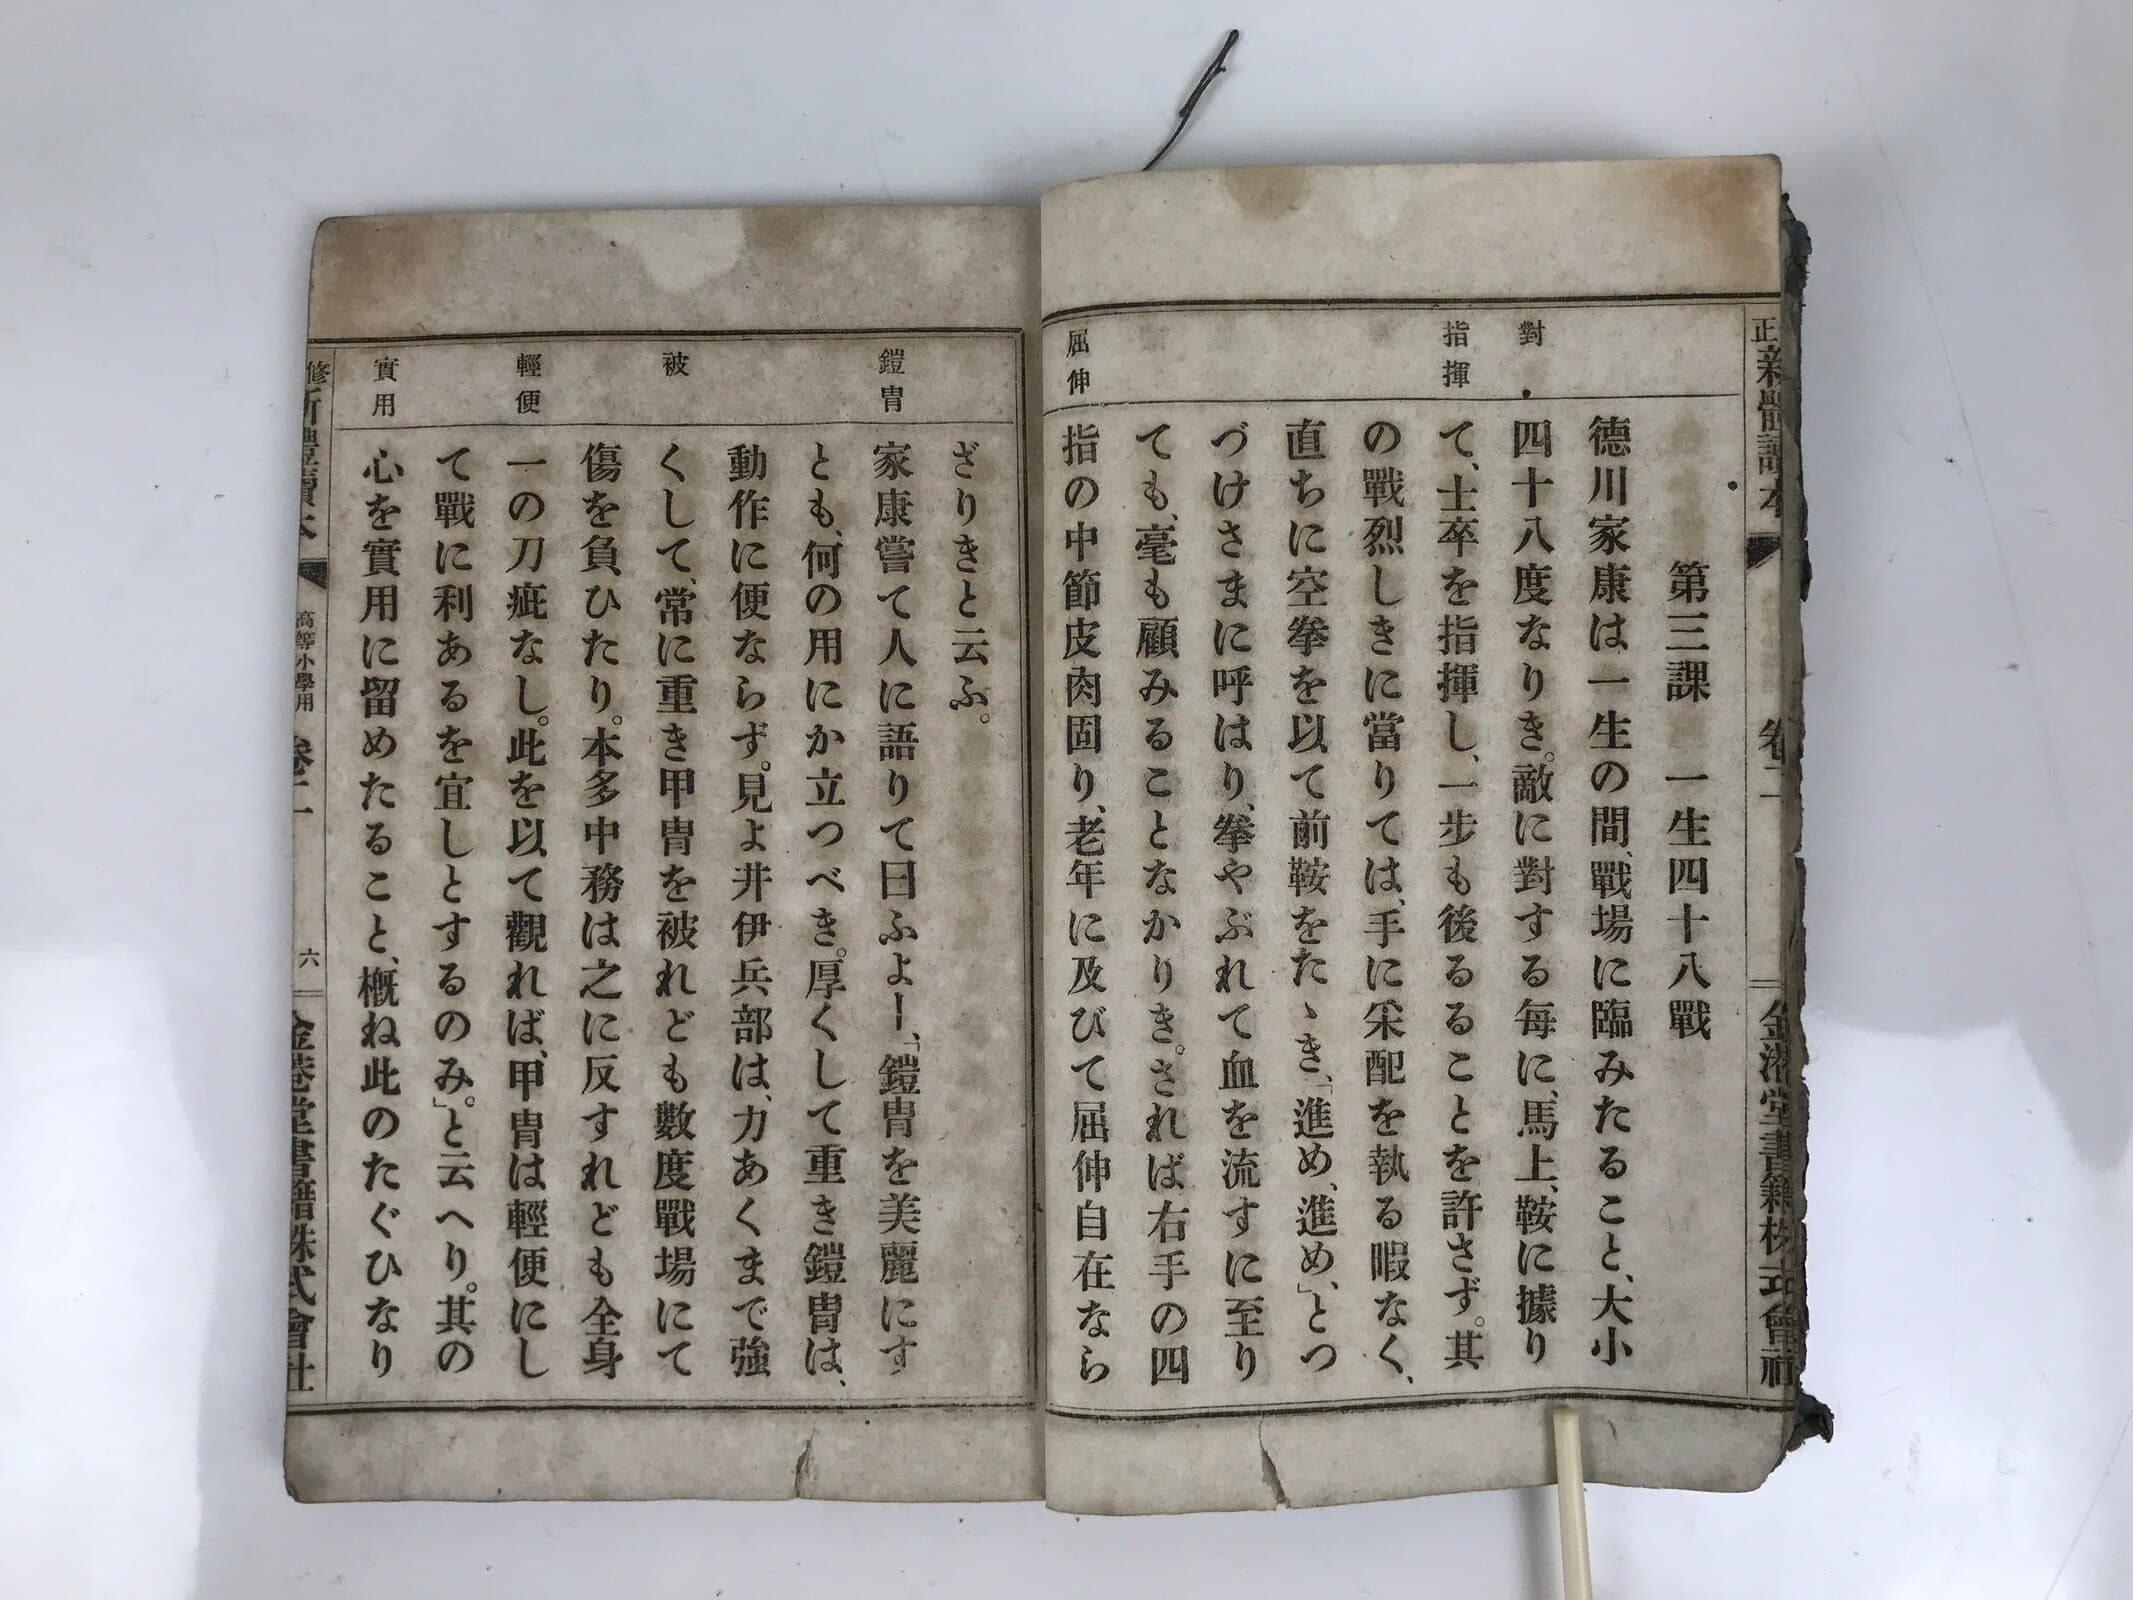 正新體讀本 卷二 金港堂書籍株式會社
對
指揮
屈伸
第三課 一生四十八戰
德川家康は一生の間、戰場に臨みたること、大小
四十八度なりき。敵に對する每に、馬上、鞍に據り
て、士卒を指揮し、一步も後るることを許さず。其
の戰烈しきに當りては、手に采配を執る暇なく、
直ちに空拳を以て前鞍をたゝき、「進め、進め、」とつ
づけさまに呼はり、拳やぶれて血を流すに至り
ても、毫も顧みることなかりき。されば右手の四
指の中節皮肉固り、老年に及びて屈伸自在なら
鎧冑
被
輕便
實用
ざりきと云ふ。
家康嘗て人に語りて曰ふよー、「鎧冑を美麗にす
とも、何の用にか立つべき。厚くして重き鎧冑は、
動作に便ならず。見よ井伊兵部は、力あくまで強
くして、常に重き甲冑を被れども數度戰場にて
傷を負ひたり。本多中務は之に反すれども全身
一の刀疵なし。此を以て觀れば、甲冑は輕便にし
て戰に利あるを宜しとするのみ。」と云へり。其の
心を實用に留めたること、槪ね此のたぐひなり
修新體讀本 高等小學用 卷二 六 金港堂書籍株式會社